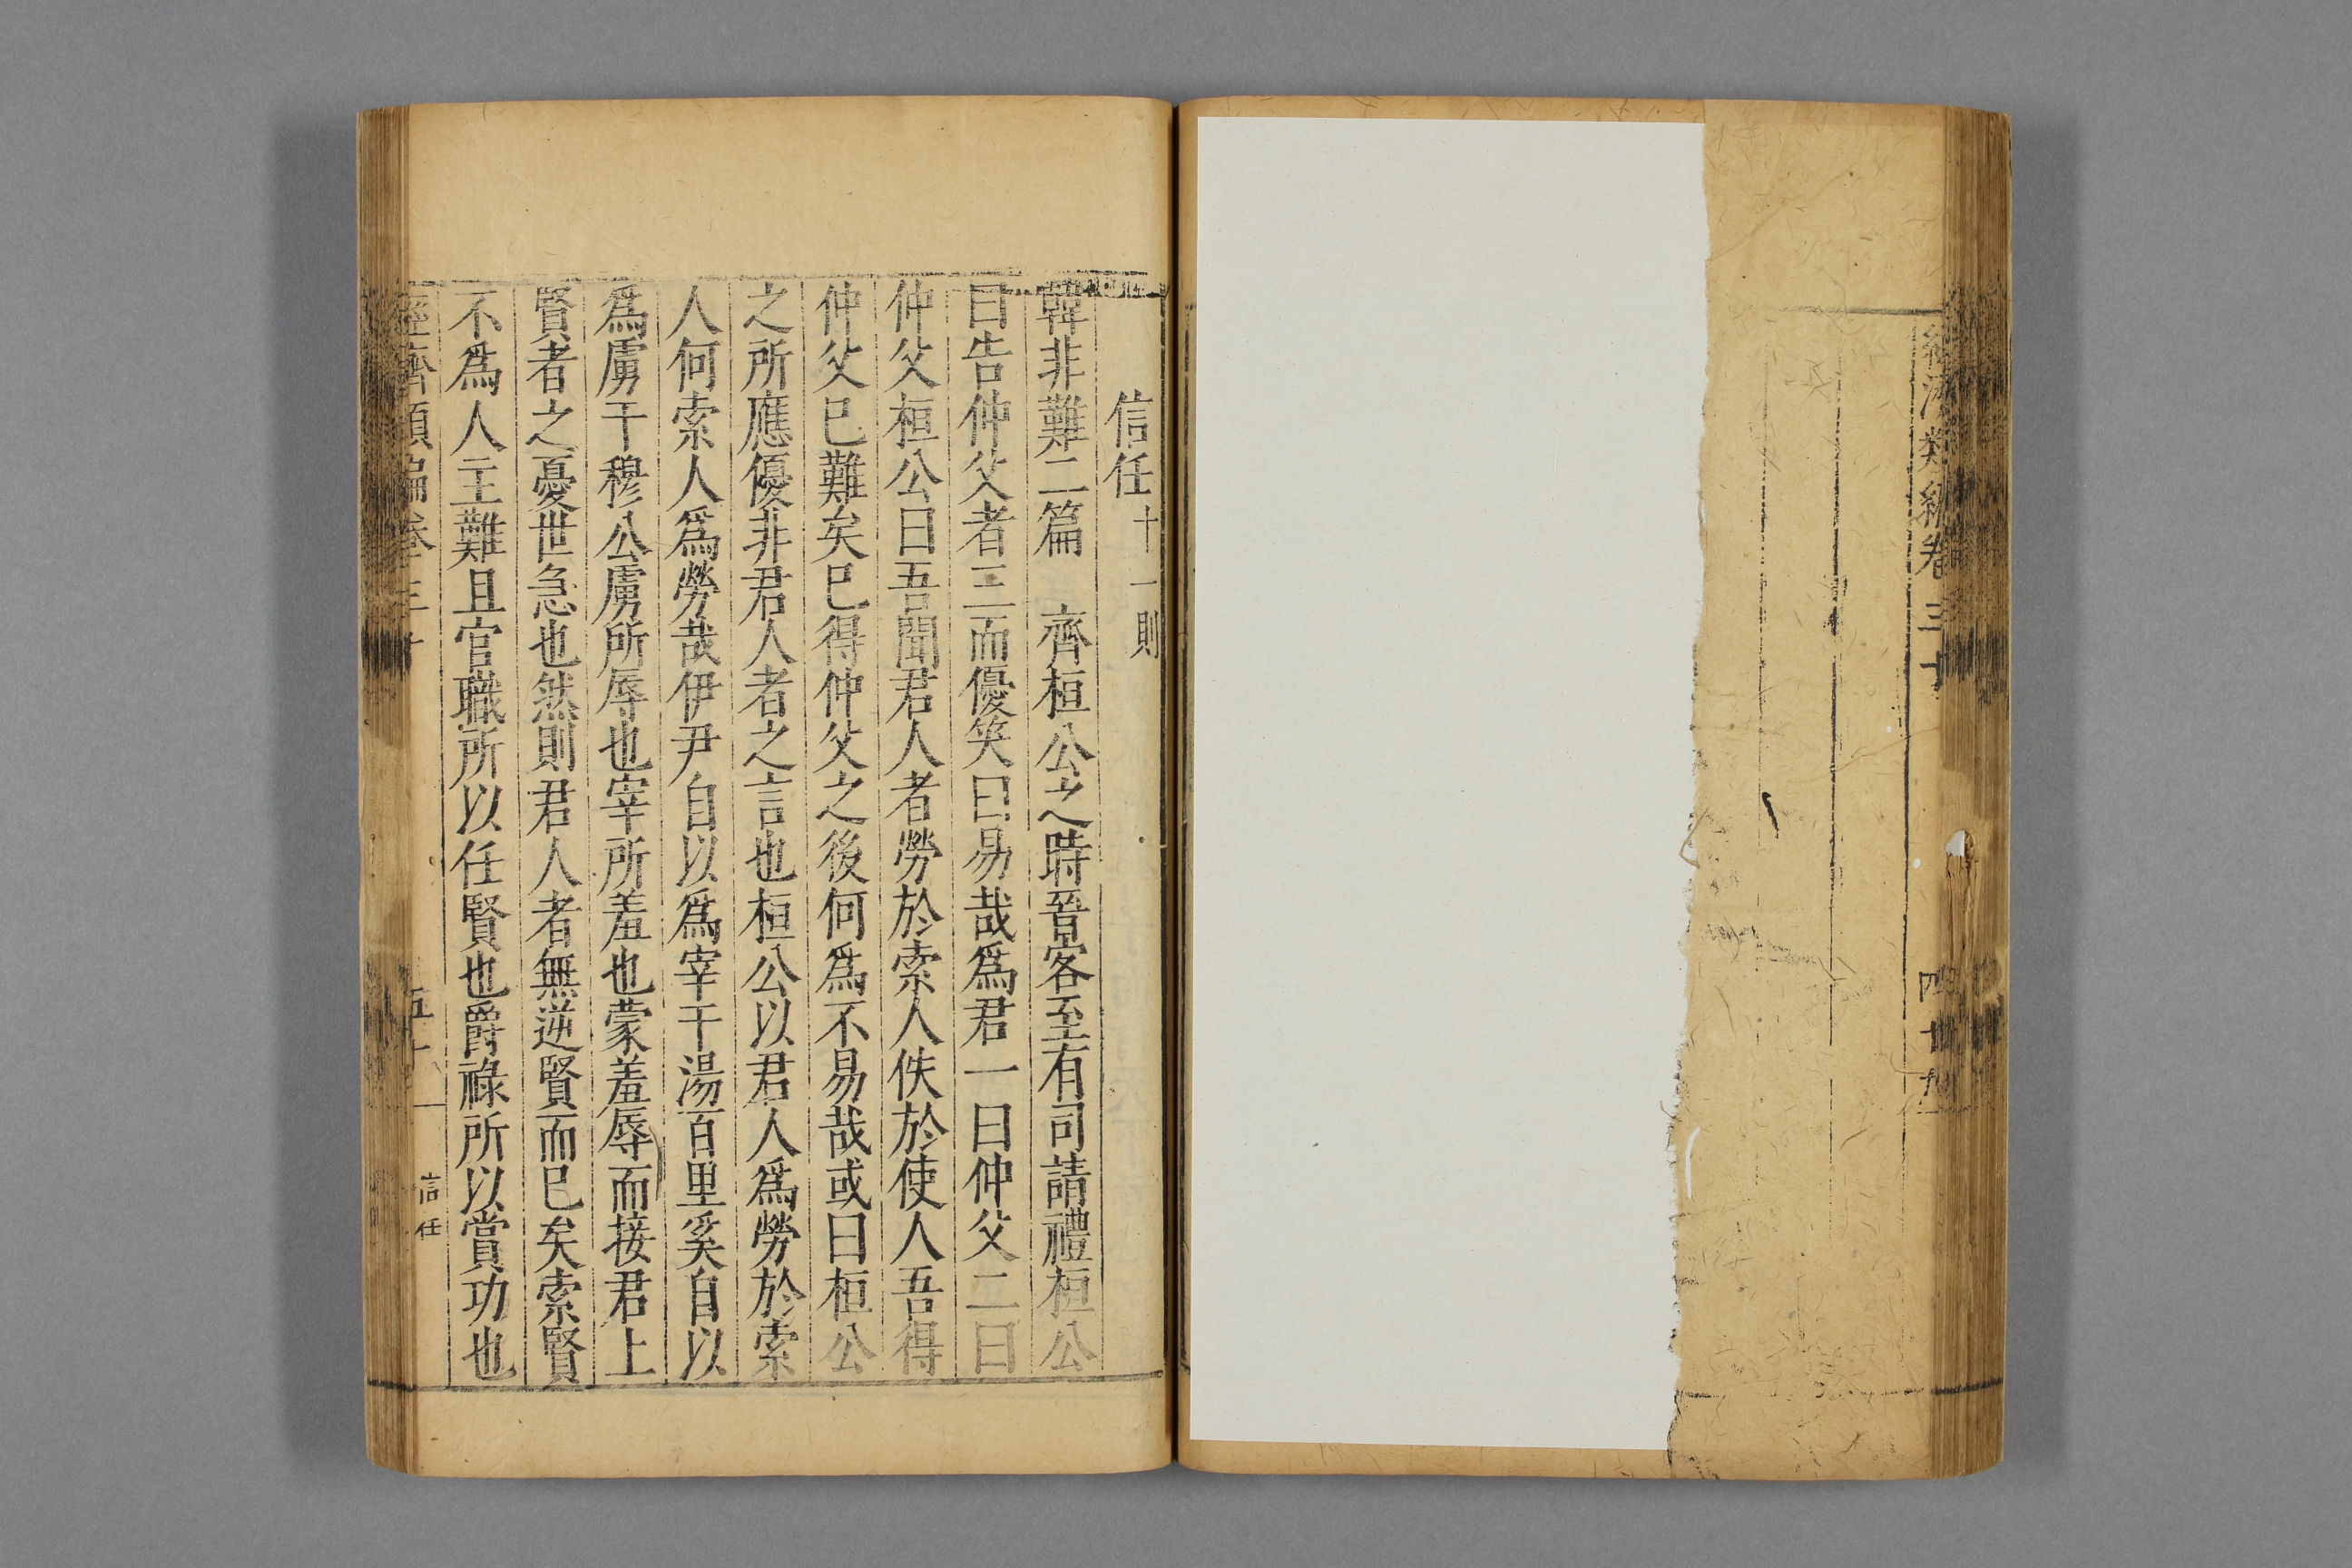 經濟類編卷三十
四十九
信任十一則
韓非難二篇　齊桓公之時晉客至有司請禮桓公
曰告仲父者三而優笑曰易哉爲君一曰仲父二曰
仲父桓公曰吾聞君人者勞於索人佚於使人吾得
仲父已難矣已得仲父之後何爲不易哉或曰桓公
之所應優非君人者之言也桓公以君人爲勞於索
人何索人爲勞哉伊尹自以爲宰干湯百里奚自以
爲虜干穆公虜所辱也宰所羞也蒙羞辱而接君上
賢者之憂世急也然則君人者無逆賢而已矣索賢
不爲人主難且官職所以任賢也爵祿所以賞功也
經濟類編卷三十
五十
信任